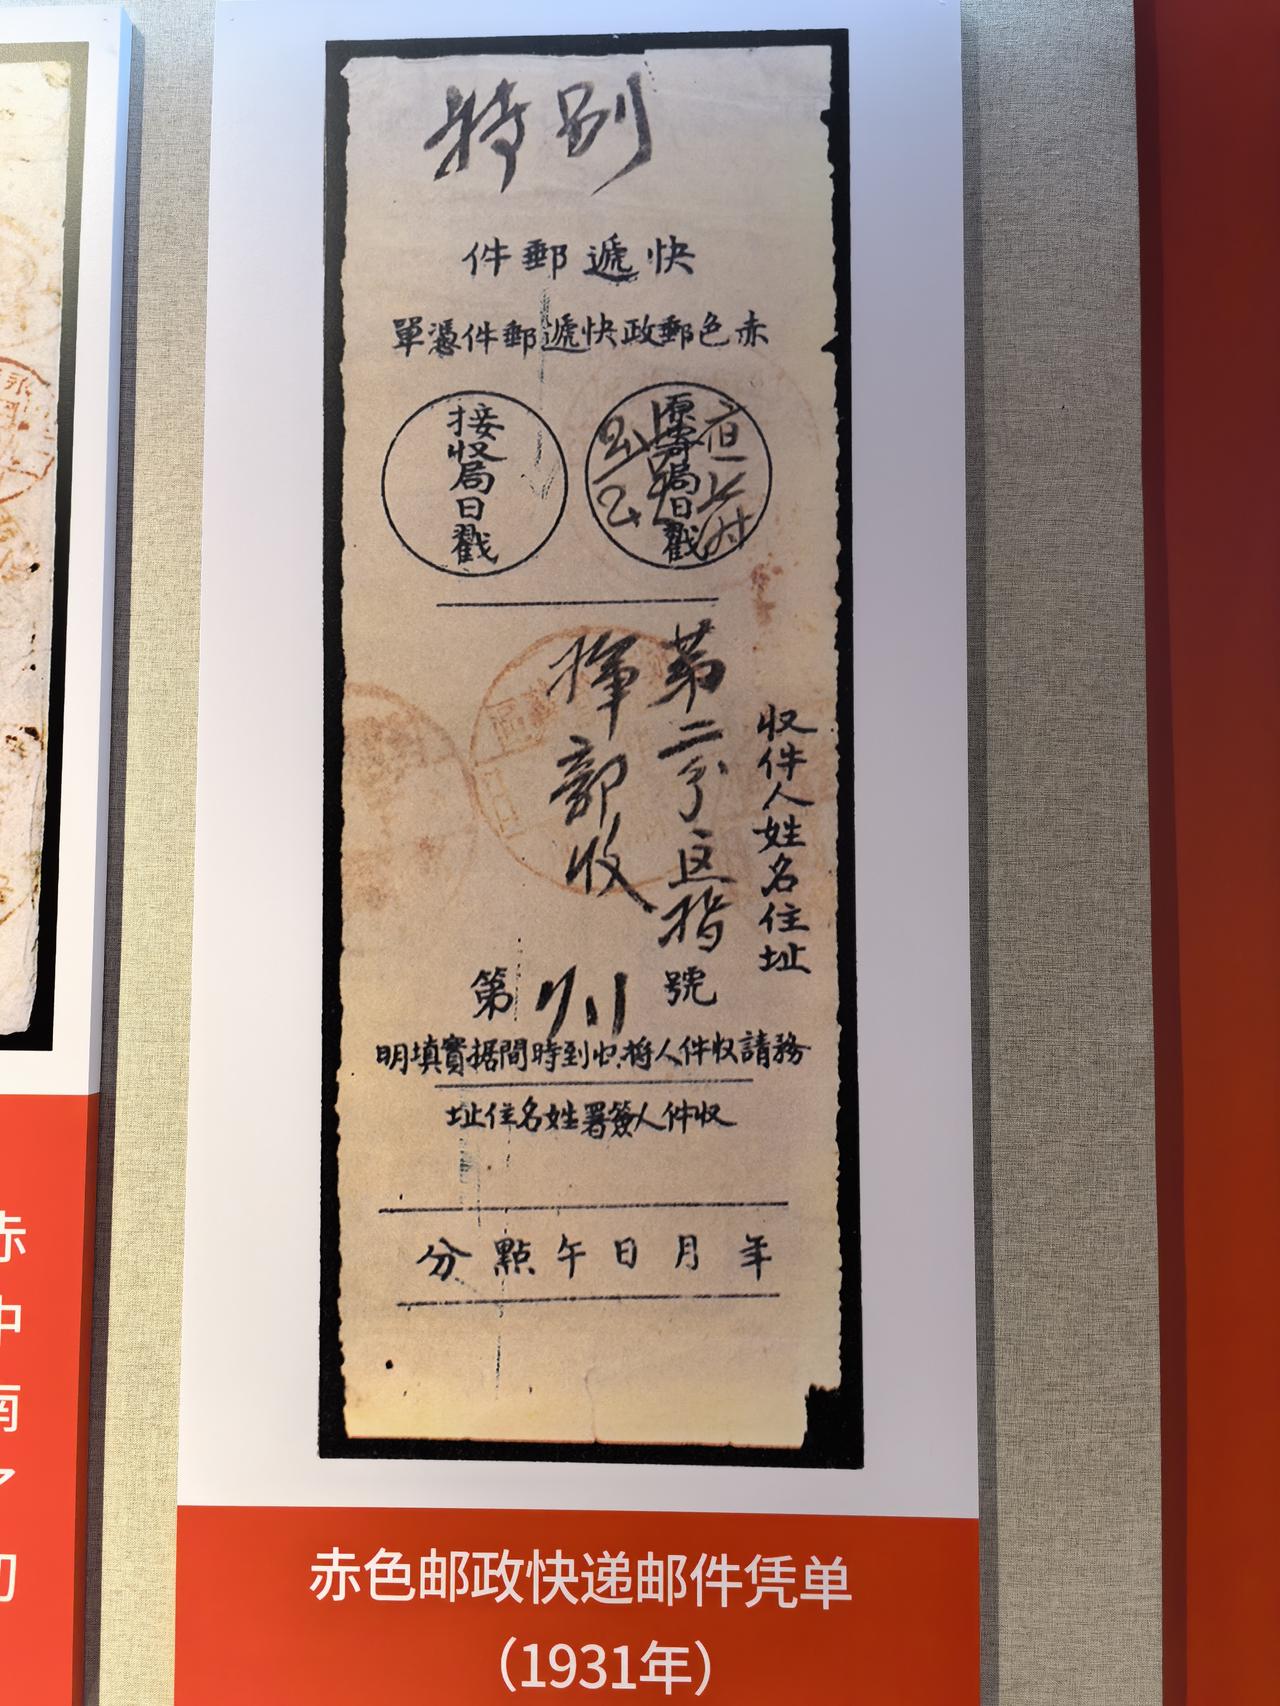 特别
快遞郵件
赤色郵政快遞郵件憑單
原寄局日戳
接收局日戳
收件人姓名住址
第二分区指
揮部收
第 號
務請收件人將收到時間据實填明
收件人簽署姓名住址
年月日午點分
赤色邮政快递邮件凭单
（1931年）
赤
中
南
了
初